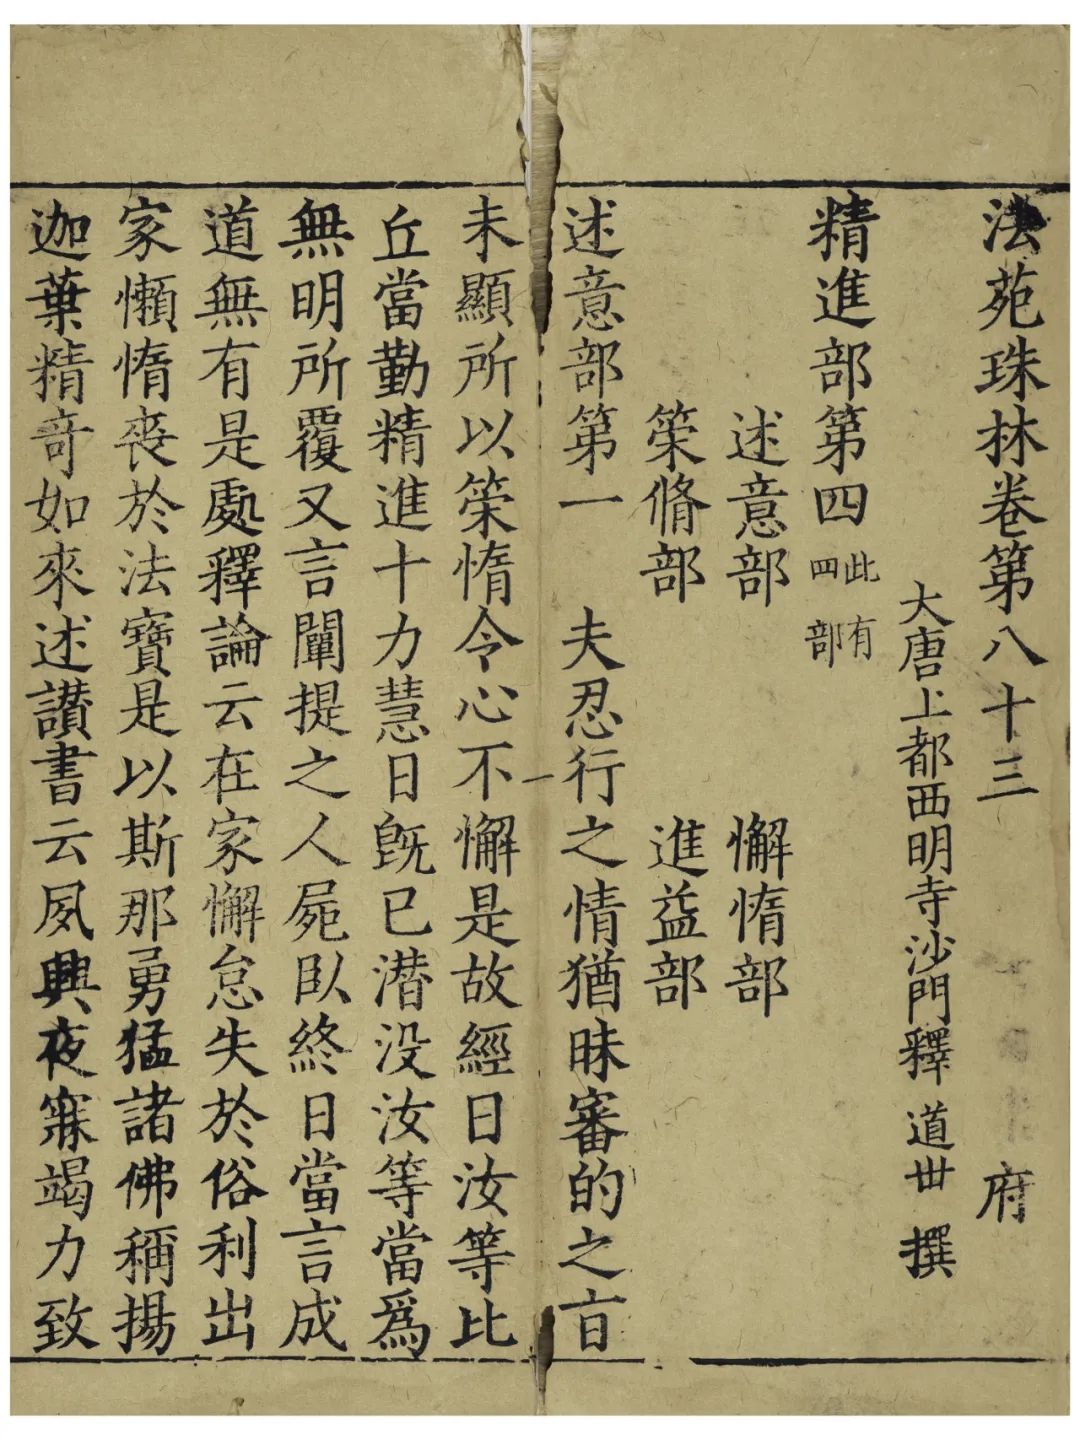 法苑珠林卷第八十三　府
大唐上都西明寺沙門釋　道世　撰
精進部第四此有四部
述意部　懈惰部
策脩部　進益部
述意部第一　夫忍行之情猶昧審的之旨
未顯所以策惰令心不懈是故經曰汝等比
丘當勤精進十力慧日旣已潜没汝等當爲
無明所覆又言闡提之人屍臥終日當言成
道無有是處釋論云在家懈怠失於俗利出
家懶惰喪於法寶是以斯那勇猛諸佛稱揚
迦葉精竒如來述讃書云夙興夜寐竭力致